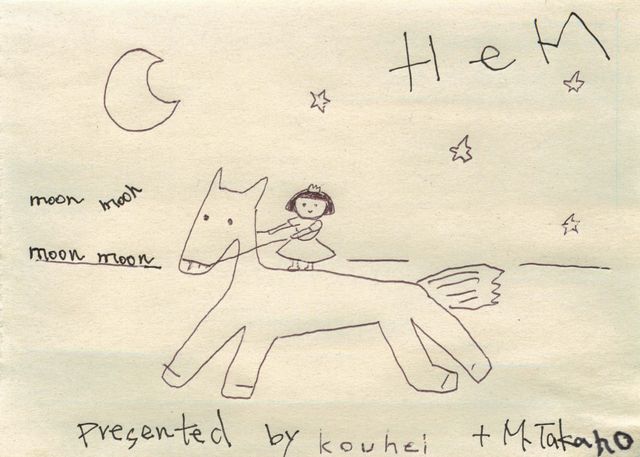 HeM
moon moon
moon moon
Presented by kouhei + M.Takano